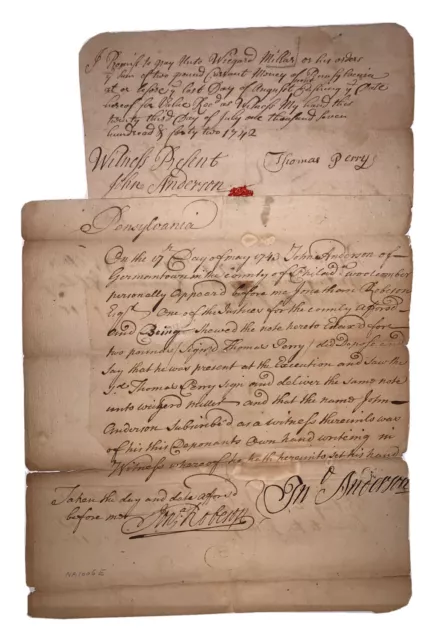 I Promise to pay Unto Weegard Millar or his orders
y Sum of two pound Currant Money of Pensilvania
at or before y Last Day of August Ensuing y Date
hereof for Value Recd as Witness My hand this
twenty third Day of July one thousand seven
hundred & forty two 1742
Witness Present Thomas Perry
John Anderson
Pensylvania
On the 17th Day of may 1743 John Anderson of
Germantown in the County of Philad
personally Appeard before me Jonathan Robeson
Esqr One of the Justices for the county Aforsd
And Being Shewed the note hereto for
two pounds Signd Thomas Perry did Depose and
Say that he was present at the Execution and Saw the
sd Thomas Perry Sign and deliver the same note
unto weegard millar and that the name John
Anderson Subscrib'd as a witness thereunto was
of his this Deponants Own hand writeing in
Witness whereof he hath hereunto set his hand
Taken the day and date aforsd Jno Anderson
before me Jona Robeson